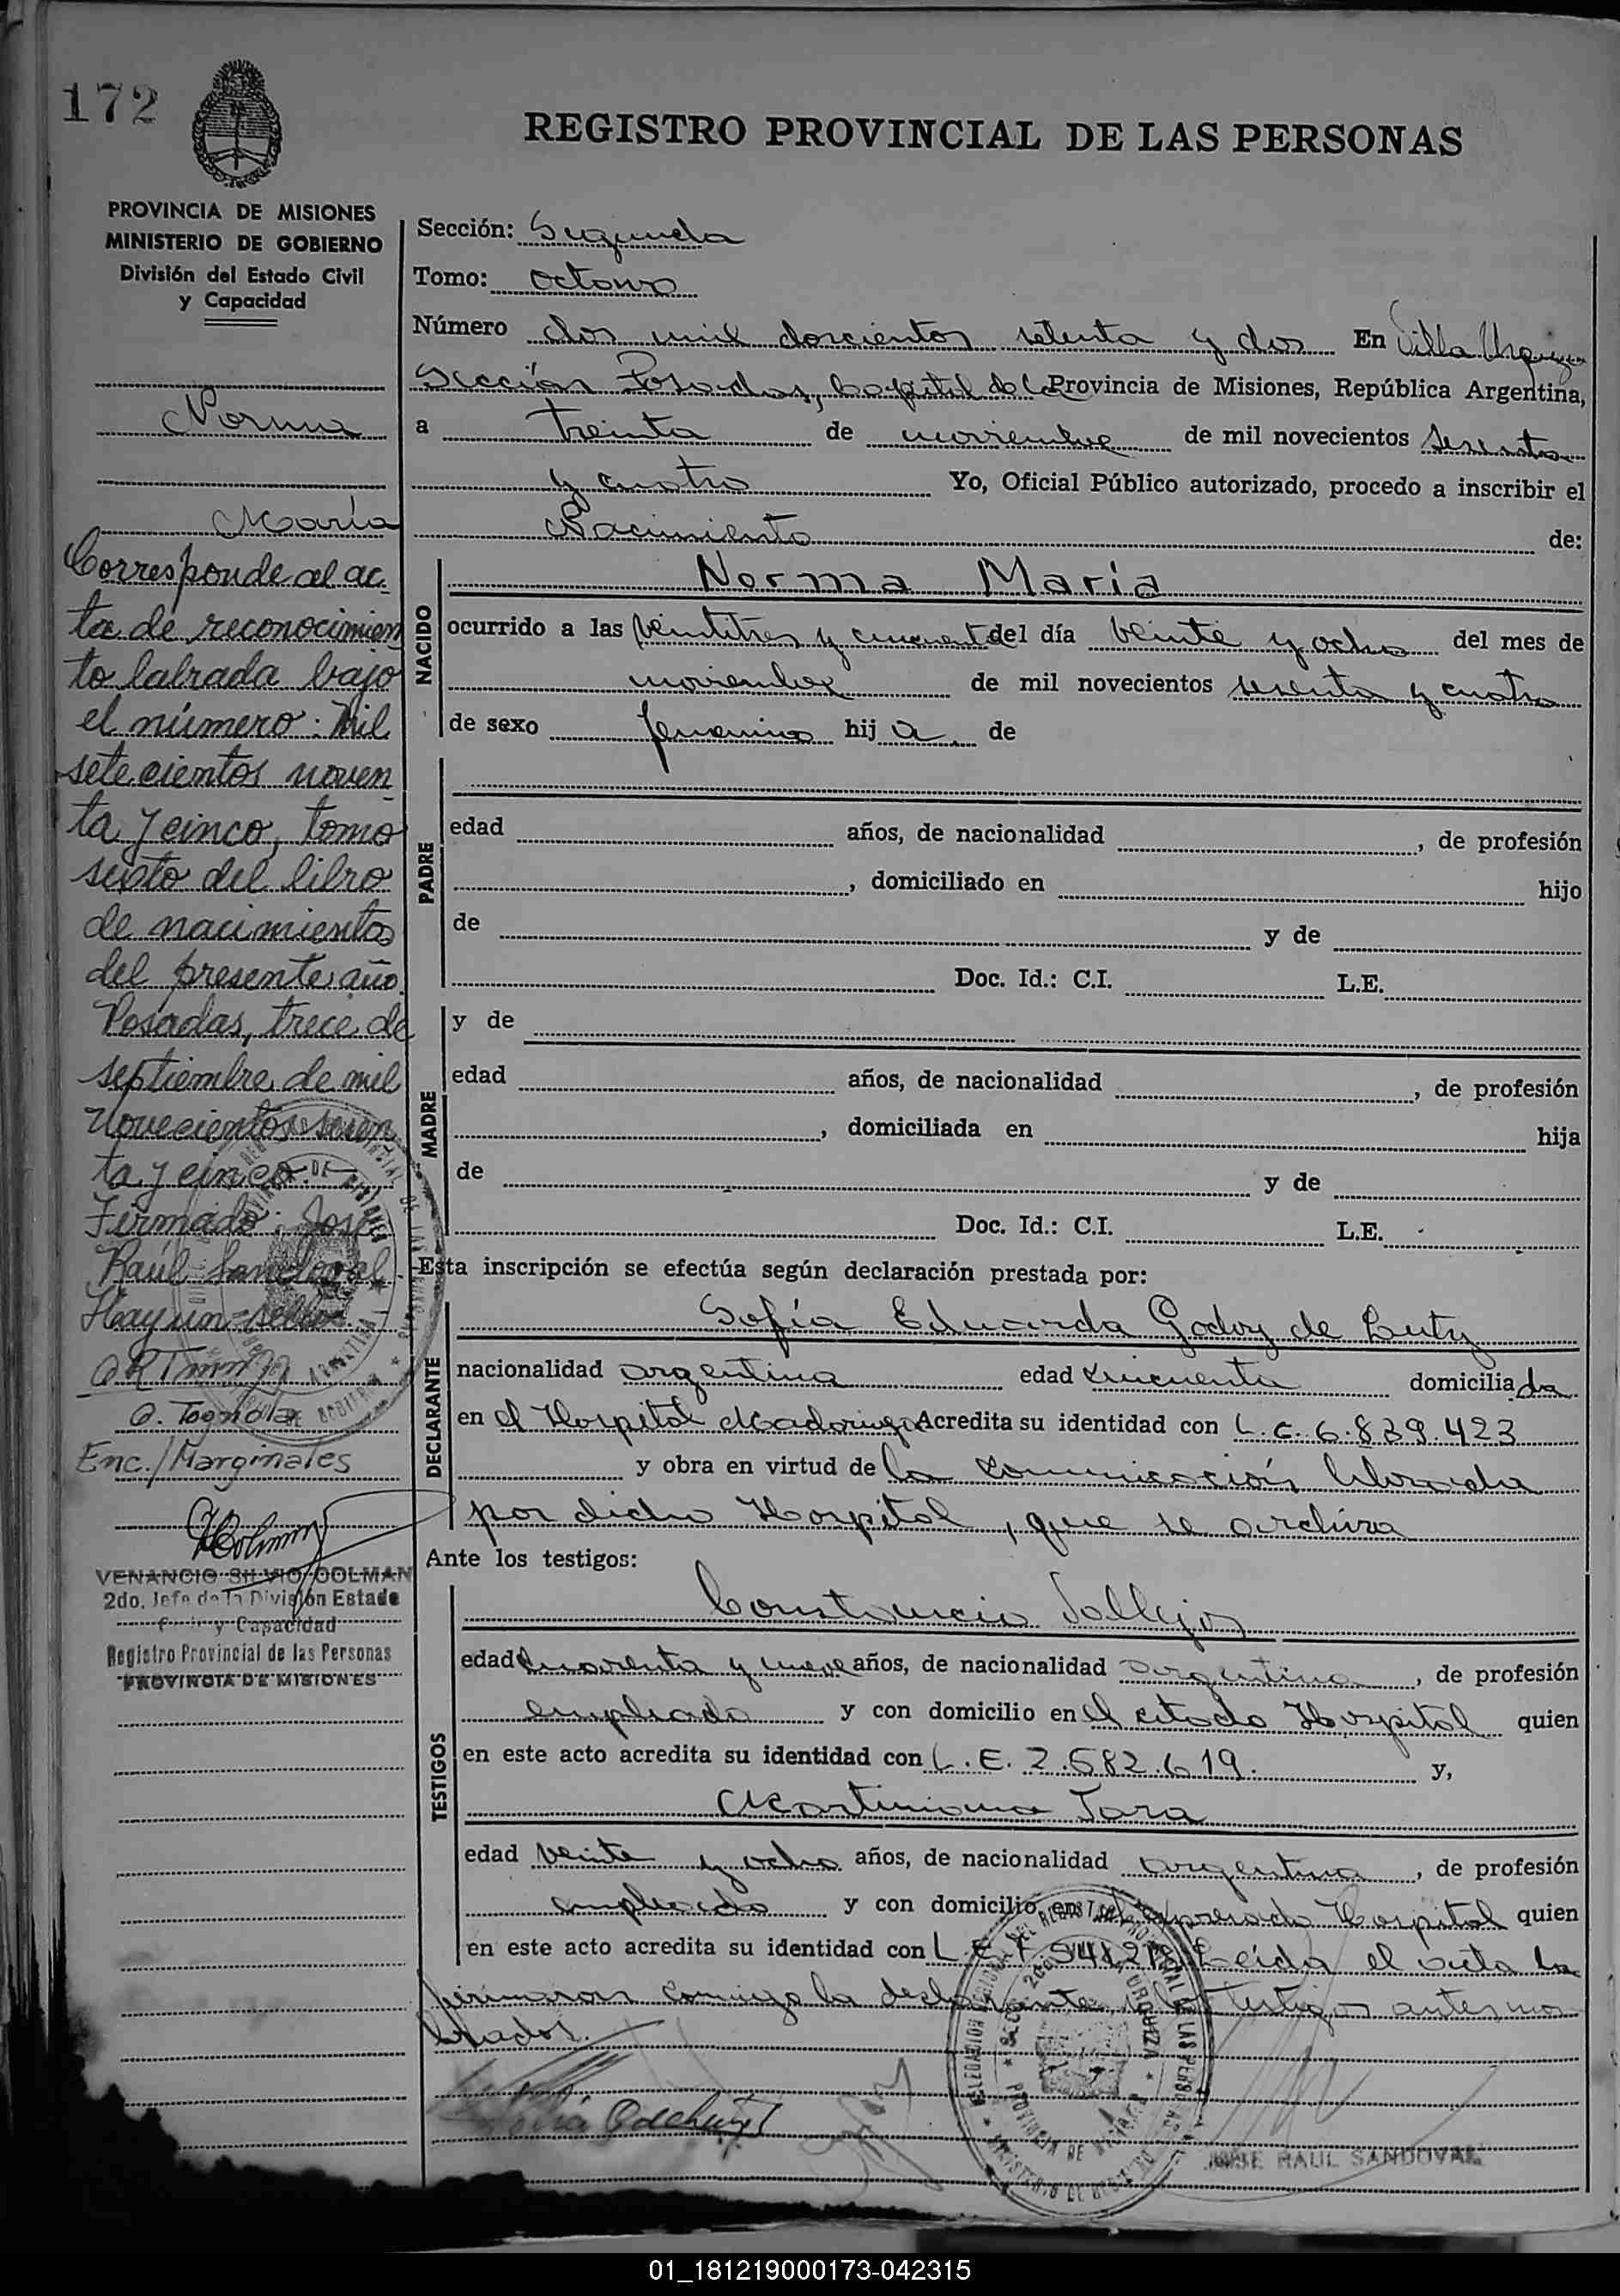 172
REGISTRO PROVINCIAL DE LAS PERSONAS
PROVINCIA DE MISIONES
MINISTERIO DE GOBIERNO
División del Estado Civil
y Capacidad
Norma
María
Corresponde al ac-
ta de reconocimien
to labrada bajo
el número: Mil
setecientos noven
ta y cinco, tomo
sexto del libro
de nacimientos
del presente año.
Posadas, trece de
septiembre de mil
novecientos sesen
ta y cinco.
Firmado: José
Raúl Sandoval
Hay un sello
O. Tognola
Enc./Marginales
VENANCIO SILVIO COLMAN
2do. Jefe de la División Estado
Civil y Capacidad
Registro Provincial de las Personas
PROVINCIA DE MISIONES
Sección: Segunda
Tomo: Octavo
Número dos mil doscientos setenta y dos En Villa Urquiza
Sección Posadas, Capital de la Provincia de Misiones, República Argentina,
a treinta de noviembre de mil novecientos sesenta
y cuatro Yo, Oficial Público autorizado, procedo a inscribir el
Nacimiento de:
NACIDO
Norma María
ocurrido a las veintitres y cincuenta del día veinte y ocho del mes de
noviembre de mil novecientos sesenta y cuatro
de sexo femenino hij a de
PADRE
edad años, de nacionalidad , de profesión
, domiciliado en hijo
de y de
Doc. Id.: C.I. L.E.
MADRE
y de
edad años, de nacionalidad , de profesión
, domiciliada en hija
de y de
Doc. Id.: C.I. L.E.
Esta inscripción se efectúa según declaración prestada por:
DECLARANTE
Sofía Eduarda Godoy de Luty
nacionalidad argentina edad cincuenta domicilia da
en el Hospital Madariaga Acredita su identidad con L.C. 6.839.423
y obra en virtud de la comunicación librada
por dicho Hospital, que se archiva
Ante los testigos:
TESTIGOS
Constancio Vallejos
edad cuarenta y nueve años, de nacionalidad argentina , de profesión
empleado y con domicilio en el citado Hospital quien
en este acto acredita su identidad con L.E. 2.582.619. y,
Martiniano Jara
edad veinte y ocho años, de nacionalidad argentina , de profesión
empleado y con domicilio en el expresado Hospital quien
en este acto acredita su identidad con L.E. Leída el acta la
firmaron conmigo la declarante y los testigos antes nom
brados.
JOSE RAUL SANDOVAL
01_181219000173-042315